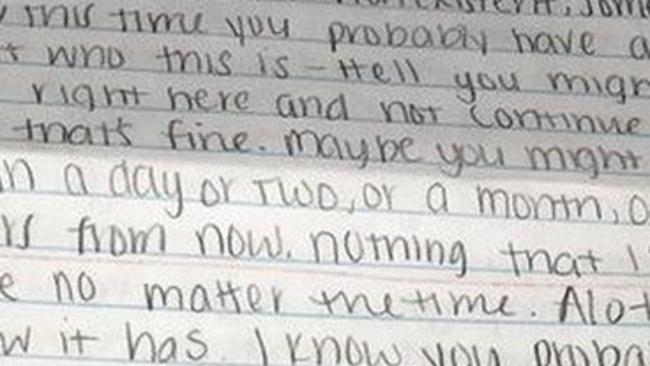 this time you probably have a
who this is - Hell you migh
right here and not continue
that's fine. maybe you might
in a day or two, or a month, o
rs from now. nothing that I
e no matter the time. Alot
w it has. I know you proba